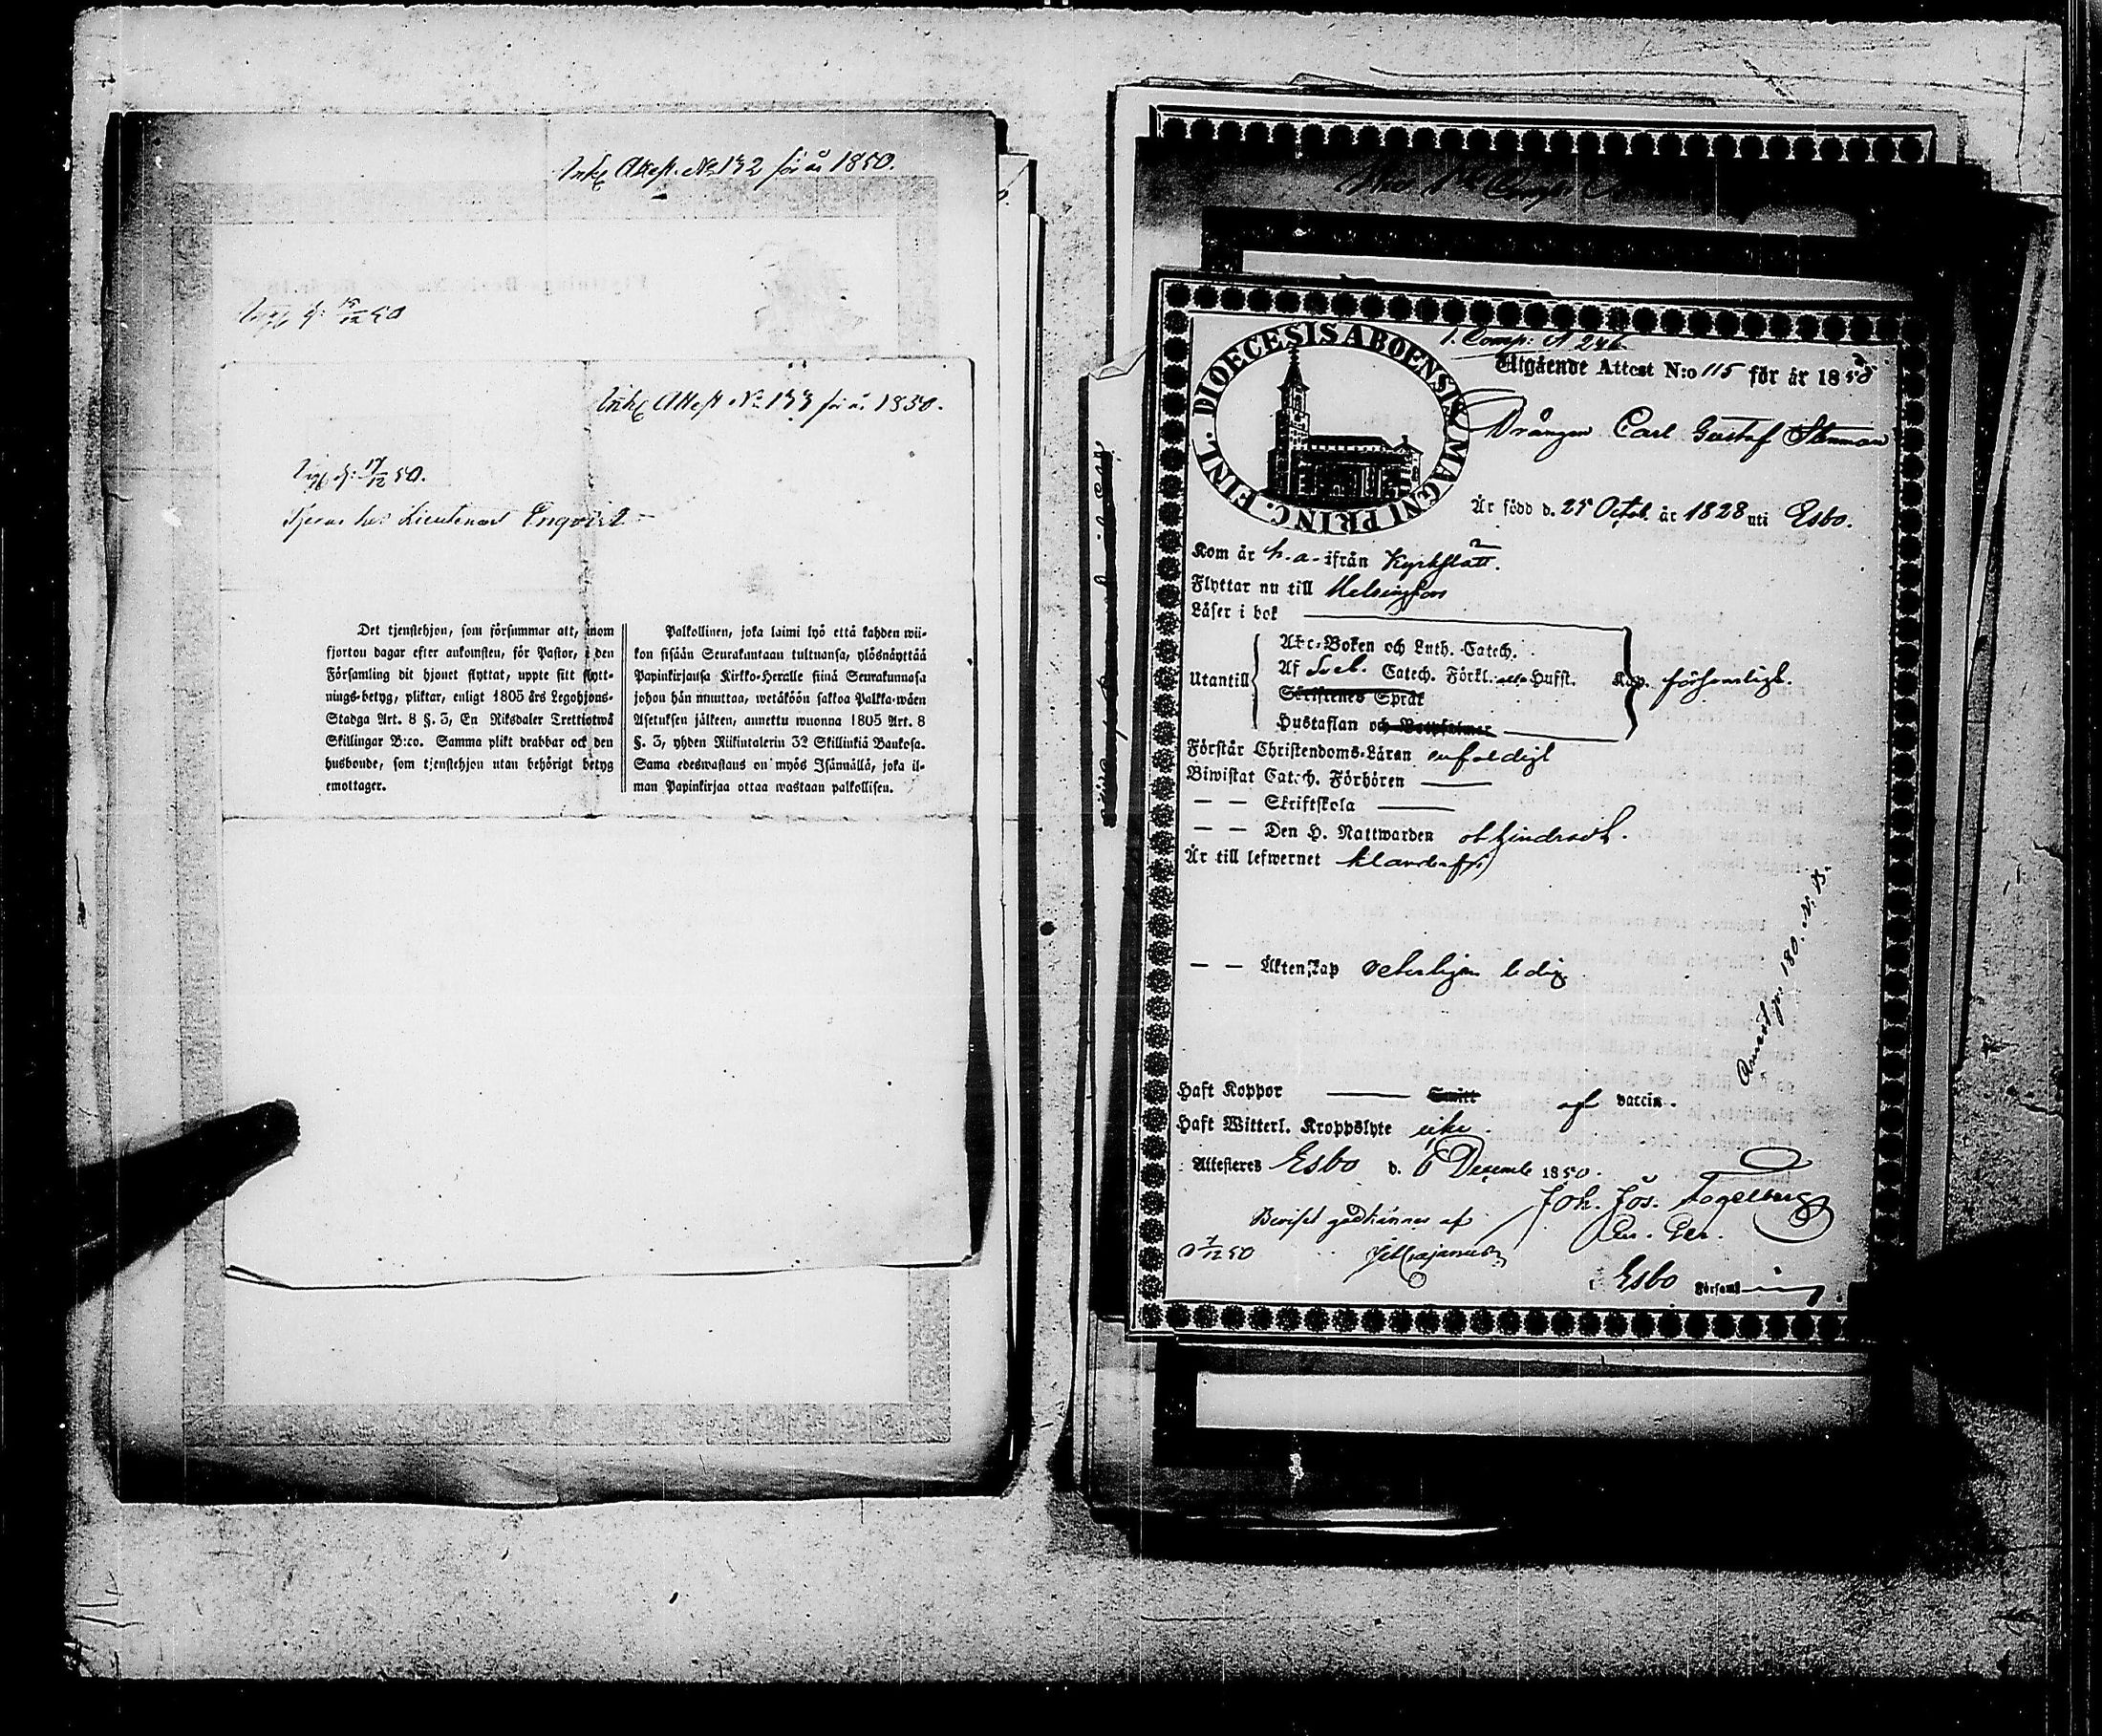 Ink. Attest. No 132 för år 1850.
12 50
Ink. Attest No 133 för år 1850.
17/12 50.
Tjenar hos Lieutenant Enqvist
Det tjenstehjon, som försummar att, inom
fjorton dagar efter ankomsten, för Pastor, i den
Församling dit hjonet flyttat, uppte sitt flytt-
nings-betyg, pliktar, enligt 1805 års Legohjons-
Stadga Art. 8 §. 3, En Riksdaler Trettiotwå
Skillingar B:co. Samma plikt drabbar ock den
husbonde, som tjenstehjon utan behörigt betyg
emottager.
Palkollinen, joka laimi lyö että kahden wii-
kon sisään Seurakuntaan tultuansa, ylösnäyttää
Papinkirjansa Kirkko-Heralle siinä Seurakunnasa
johon hän muuttaa, wetäköön sakkoa Palkka-wäen
Asetuksen jälkeen, annettu wuonna 1805 Art. 8
§. 3, yhden Riikintalerin 32 Skillinkiä Bankosa.
Sama edeswastaus on myös Isännällä, joka il-
man Papinkirjaa ottaa wastaan palkollisen.
DIOECESIS ABOENSIS MAGNI PRINC. FINL.
1. Comp: A 246
Utgående Attest N:o 115 för år 1850
Drängen Carl Gustaf Stenman
Är född d. 25 Octob. år 1828 uti Esbo.
Kom år h. a. ifrån Kyrkslätt.
Flyttar nu till Helsingfors
Läser i bok
Utantill
Abc-Boken och Luth. Catech.
Af Sveb. Catech. Förkl. Hufst. Kap. försvarligt.
Skriftenes Språk
Hustaflan och Botpsalmer
Förstår Christendoms-Läran enfaldigt
Biwistat Catech. Förhören
— — Skriftskola
— — Den H. Nattwarden ohindradt.
Är till lefwernet klanderfri
— — Äktenskap veterligen ledig
Haft Koppor af vaccin.
Haft Witterl. Kroppslyte icke.
Attesteras Esbo d. 6 Decemb 1850.
Joh. Jos. Fogelberg
Beviset godkännes af
7/12 50
Esbo Församl
180. N: 13.